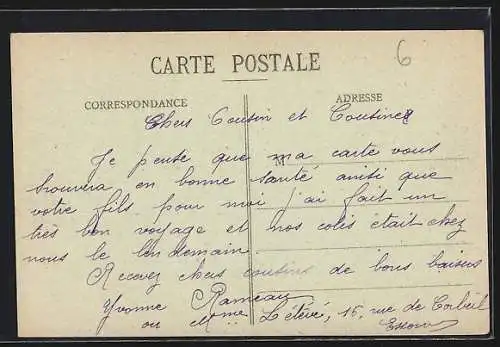 6
CARTE POSTALE
CORRESPONDANCE
ADRESSE
Chers Cousin et Cousines
M
Je pense que ma carte vous
trouvera en bonne santé ainsi que
votre fils pour moi j'ai fait un
très bon voyage et nos colis était chez
nous le lendemain
Recevez chers cousins de bons baisers
Yvonne Rameau
ou Mme Letévé, 15, rue de Corbeil